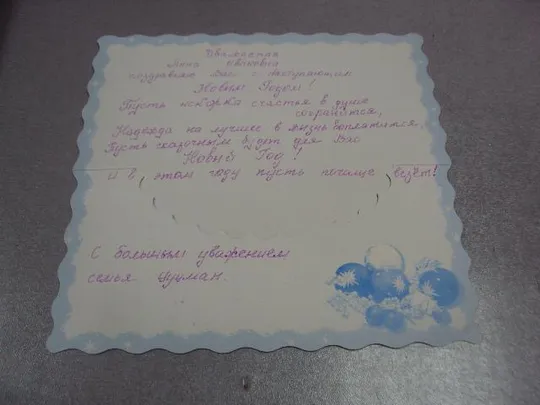 Уважаемая
Анна Ивановна
поздравляю Вас с наступающим
Новым Годом!
Пусть искорка счастья в душе
сохранится,
Надежда на лучшее в жизнь воплотится,
Пусть сказочным будет для Вас
Новый Год!
И в этом году пусть почаще везёт!
С большим уважением
семья